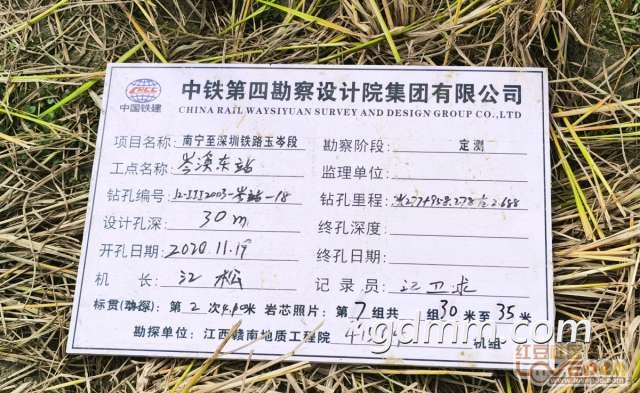 CRCC
中国铁建
中铁第四勘察设计院集团有限公司
CHINA RAILWAY SIYUAN SURVEY AND DESIGN GROUP CO.,LTD.
项目名称: 南宁至深圳铁路玉岑段 勘察阶段: 定测
工点名称: 岑溪东站 监理单位:
钻孔编号: 钻孔里程:
设计孔深: 30m 终孔深度:
开孔日期: 2020.11.19 终孔日期:
机 长: 江松 记录员:
标贯(动探): 第2次4.90米 岩芯照片: 第7组共 组30米至35米
勘探单位: 江西赣南地质工程院 机组
gdmm.com